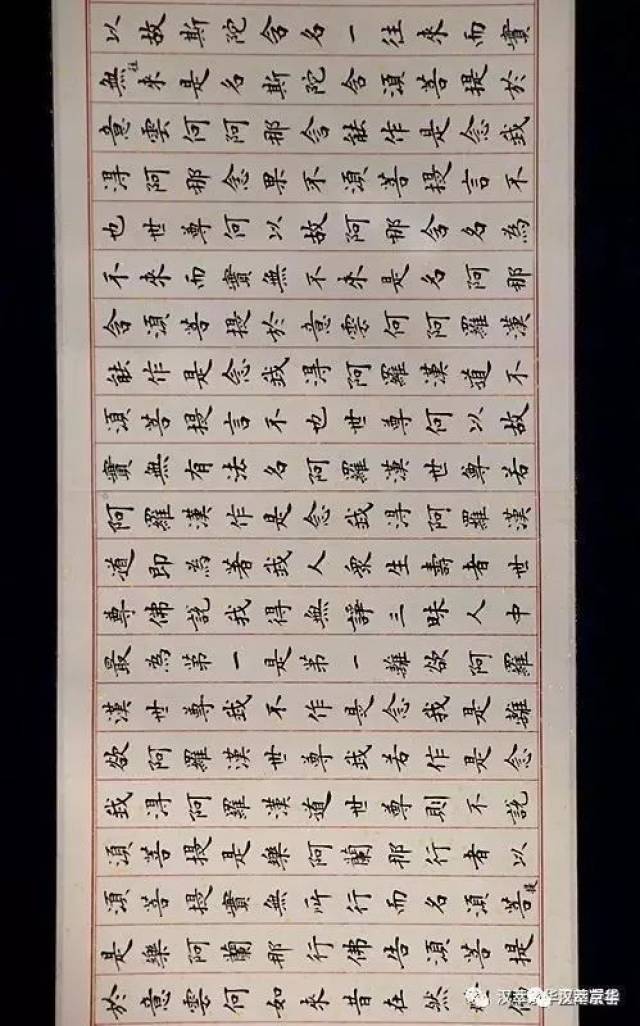 以故斯陀含名一往來而實
無往來是名斯陀含須菩提於
意雲何阿那含能作是念我
淂阿那念果不須菩提言不
也世尊何以故阿那含名為
不來而實無不來是名阿那
含須菩提於意雲何阿羅漢
能作是念我淂阿羅漢道不
須菩提言不也世尊何以故
實無有法名阿羅漢世尊若
阿羅漢作是念我淂阿羅漢
道即為著我人眾生壽者世
尊佛說我得無諍三昧人中
最為第一是第一離欲阿羅
漢世尊我不作是念我是離
欲阿羅漢世尊我若作是念
我淂阿羅漢道世尊則不說
須菩提是樂阿蘭那行者以
須菩提實無所行而名須菩提
是樂阿蘭那行佛告須菩提
於意雲何如來昔在然